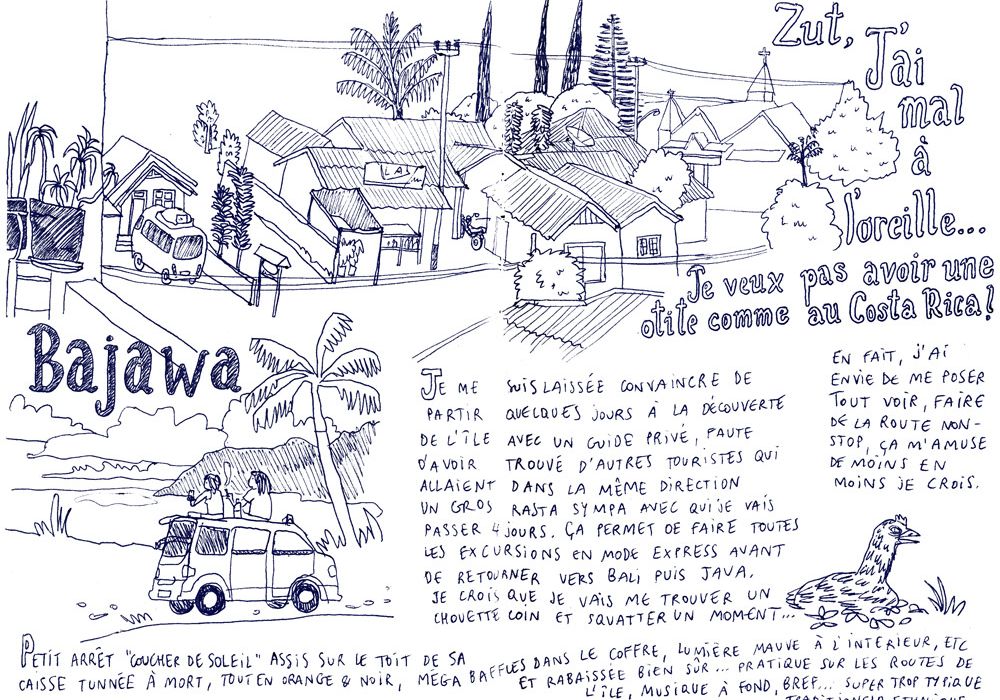 Zut,
J'ai
mal
à
l'oreille...
Je veux pas avoir une
otite comme au Costa Rica!
Bajawa
JE ME SUIS LAISSÉE CONVAINCRE DE
PARTIR QUELQUES JOURS À LA DÉCOUVERTE
DE L'ÎLE AVEC UN GUIDE PRIVÉ, FAUTE
D'AVOIR TROUVÉ D'AUTRES TOURISTES QUI
ALLAIENT DANS LA MÊME DIRECTION
UN GROS RASTA SYMPA AVEC QUI JE VAIS
PASSER 4 JOURS. ÇA PERMET DE FAIRE TOUTES
LES EXCURSIONS EN MODE EXPRESS AVANT
DE RETOURNER VERS BALI PUIS JAVA.
JE CROIS QUE JE VAIS ME TROUVER UN
CHOUETTE COIN ET SQUATTER UN MOMENT...
EN FAIT, J'AI
ENVIE DE ME POSER
TOUT VOIR, FAIRE
DE LA ROUTE NON-
STOP, ÇA M'AMUSE
DE MOINS EN
MOINS JE CROIS.
PETIT ARRÊT "COUCHER DE SOLEIL" ASSIS SUR LE TOIT DE SA
CAISSE TUNNÉE À MORT, TOUT EN ORANGE & NOIR, MÉGA BAFFLES DANS LE COFFRE, LUMIÈRE MAUVE À L'INTÉRIEUR, ETC
ET RABAISSÉE BIEN SÛR... PRATIQUE SUR LES ROUTES DE
L'ÎLE, MUSIQUE À FOND, BREF... SUPER TROP TYPIQUE